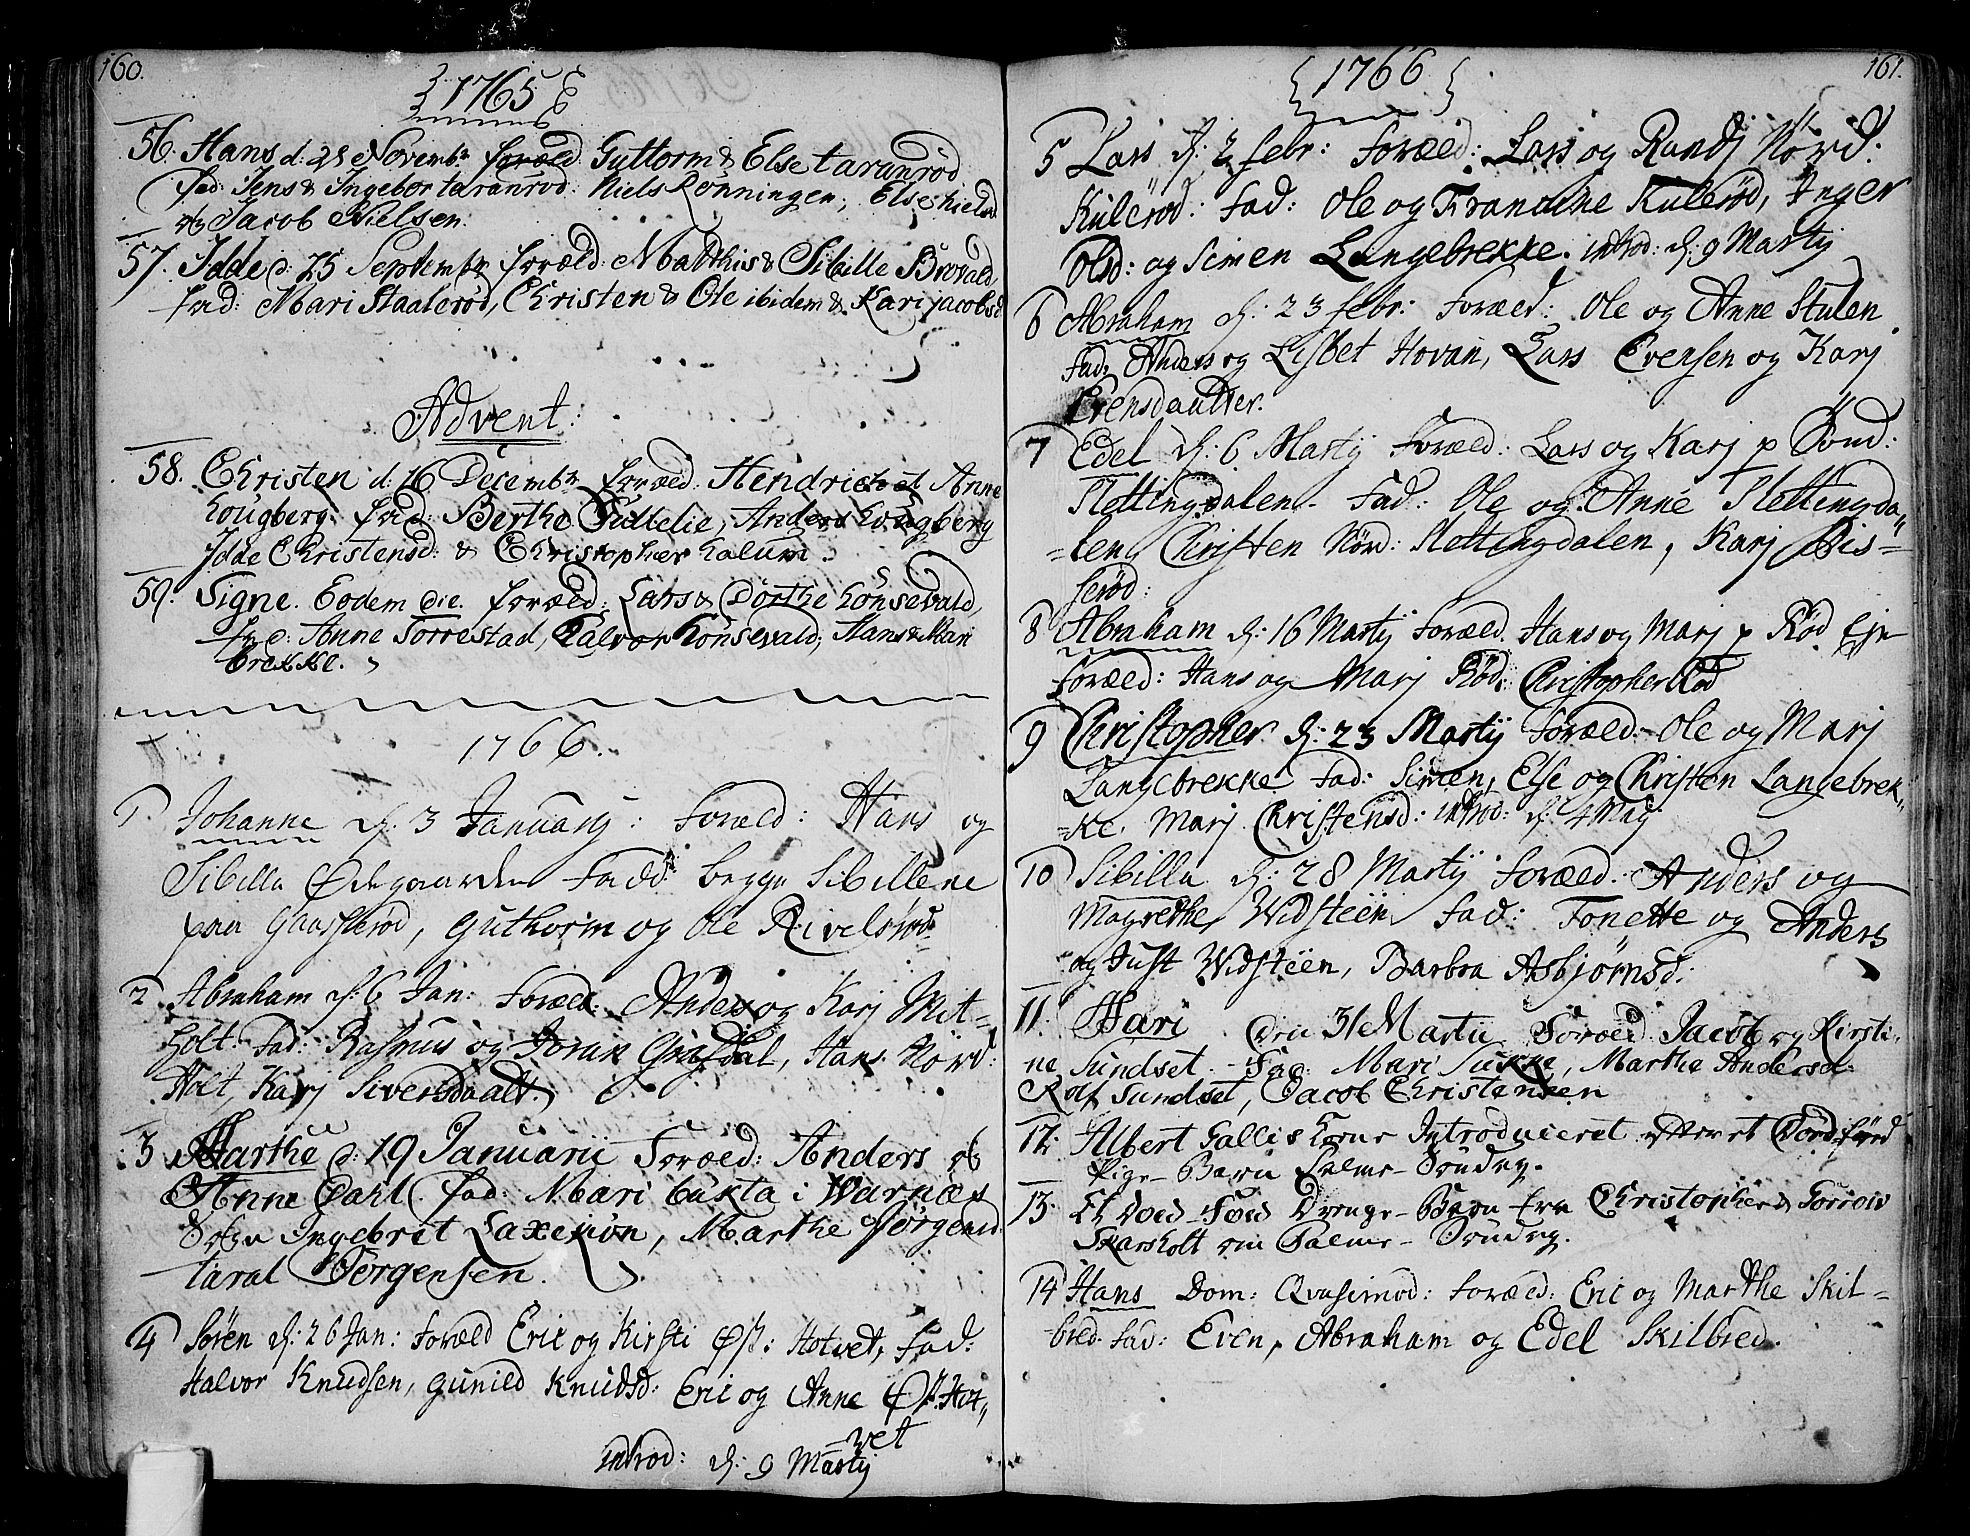 160.
1765
56. Hans d: 25 Novembr foræld Guttorm & Else taranrød
fad: Jens & Ingebor taranrød: Niels Rønningen, Else nielsd
& Jacob Nielsen.
57. Idde d: 25 Septembr foræld: Matthis & Sibille Brovald,
fad: Mari Staalerød, Christen & Ole ibidem & Kari jacobsd
Advent:
58. Christen d: 16 Decembr foræld: Hendrich et Anne
Hougberg. fad: Berthe Sidtelie, Anders Hougberg
Idde Christensd: & Christopher Kalum.
59. Signe. Eodem die. foræld: Lars & Dorthe Hønsevald,
fad: Anne Torrestad, Halvor Hønsevald, Hans & Mari
brekke.
1766.
1 Johanne d: 3 Januarj: Foræld: Hans og
Sibilla Ødegaarden Fadd: begge Sibillene
paa Gaasserød, Guthorm og Ole Rivelsrød
2 Abraham d: 6 Jan: Foræld: Anders og Karj Mit-
holt. Fad: Rasmus og Joran Grisdal, Hans Nørd:
Holt, Karj Siversdaatt.
3 Marthe d: 19 Januarii Foræld: Anders &
Anne Dahl. fad: Mari buxta i Warnæs
Sogn Ingebret Laxekøn, Marthe Jørgensd
taral Jørgensen.
4 Søren d: 26 Jan: Foræld Eric og Kirsti Øst: Hotvet, Fad:
Halvor Knudsen, Gunild Knudsd: Eric og Anne Øst. Hot-
vet
introd: d: 9 Martij
161.
1766
5 Lars d: 2 febr: Foræld: Lars og Randj Nörd:
Kulerød: Fad: Ole og Francine Kulerød, Inger
Olsd: og Simen Langebrekke. introd: d: 9 Martij
6 Abraham d: 23 febr: Foræld: Ole og Anne Stulen
Fad: Anders og Lisbet Hovan, Lars Evensen og Karj
Evensdautter.
7 Edel d: 6 Martij Foræld: Lars og Karj p Sönd:
Slettingsdalen. Fad: Ole og Anne Slettingda-
-len, Christen Nörd: Slettingdalen, Karj Bis-
serød:
8 Abraham d: 16 Martij Foræld. Hans og Marj p Röd Eje
Foræld: Hans og Marj Röd. Christopher Röd
9 Christopher d: 23 Martij Foræld: Ole og Marj
Langebrekke Fad: Simen, Else og Christen Langebrek-
-ke. Marj Christensd: introd: d: 4 Maj
10 Sibilla d: 28 Martij Foræld: Anders og
Magrethe Widsteen Fad: Tonette og Anders
og Just Widsteen, Barbra Asbjørnsd:
11. Mari den 31 Martii Foræld: Jacob og Kirsti-
ne Sundset. Fad: Mari Sukke, Marthe Andersd:
Rolf Sundset, Jacob Christensen
12. Albert Gallis Kone Introduceret efter et Død-fød
Pige-Barn Palme-Søndag.
13. Et Død-Fød Drenge-Barn fra Christopher & Torrow
Skarsholt om Palme-Søndag.
14 Hans Dom: Qvasimod: Foræld: Eric og Marthe Skil-
bred. Fad: Even, Abraham og Edel Skilbred.